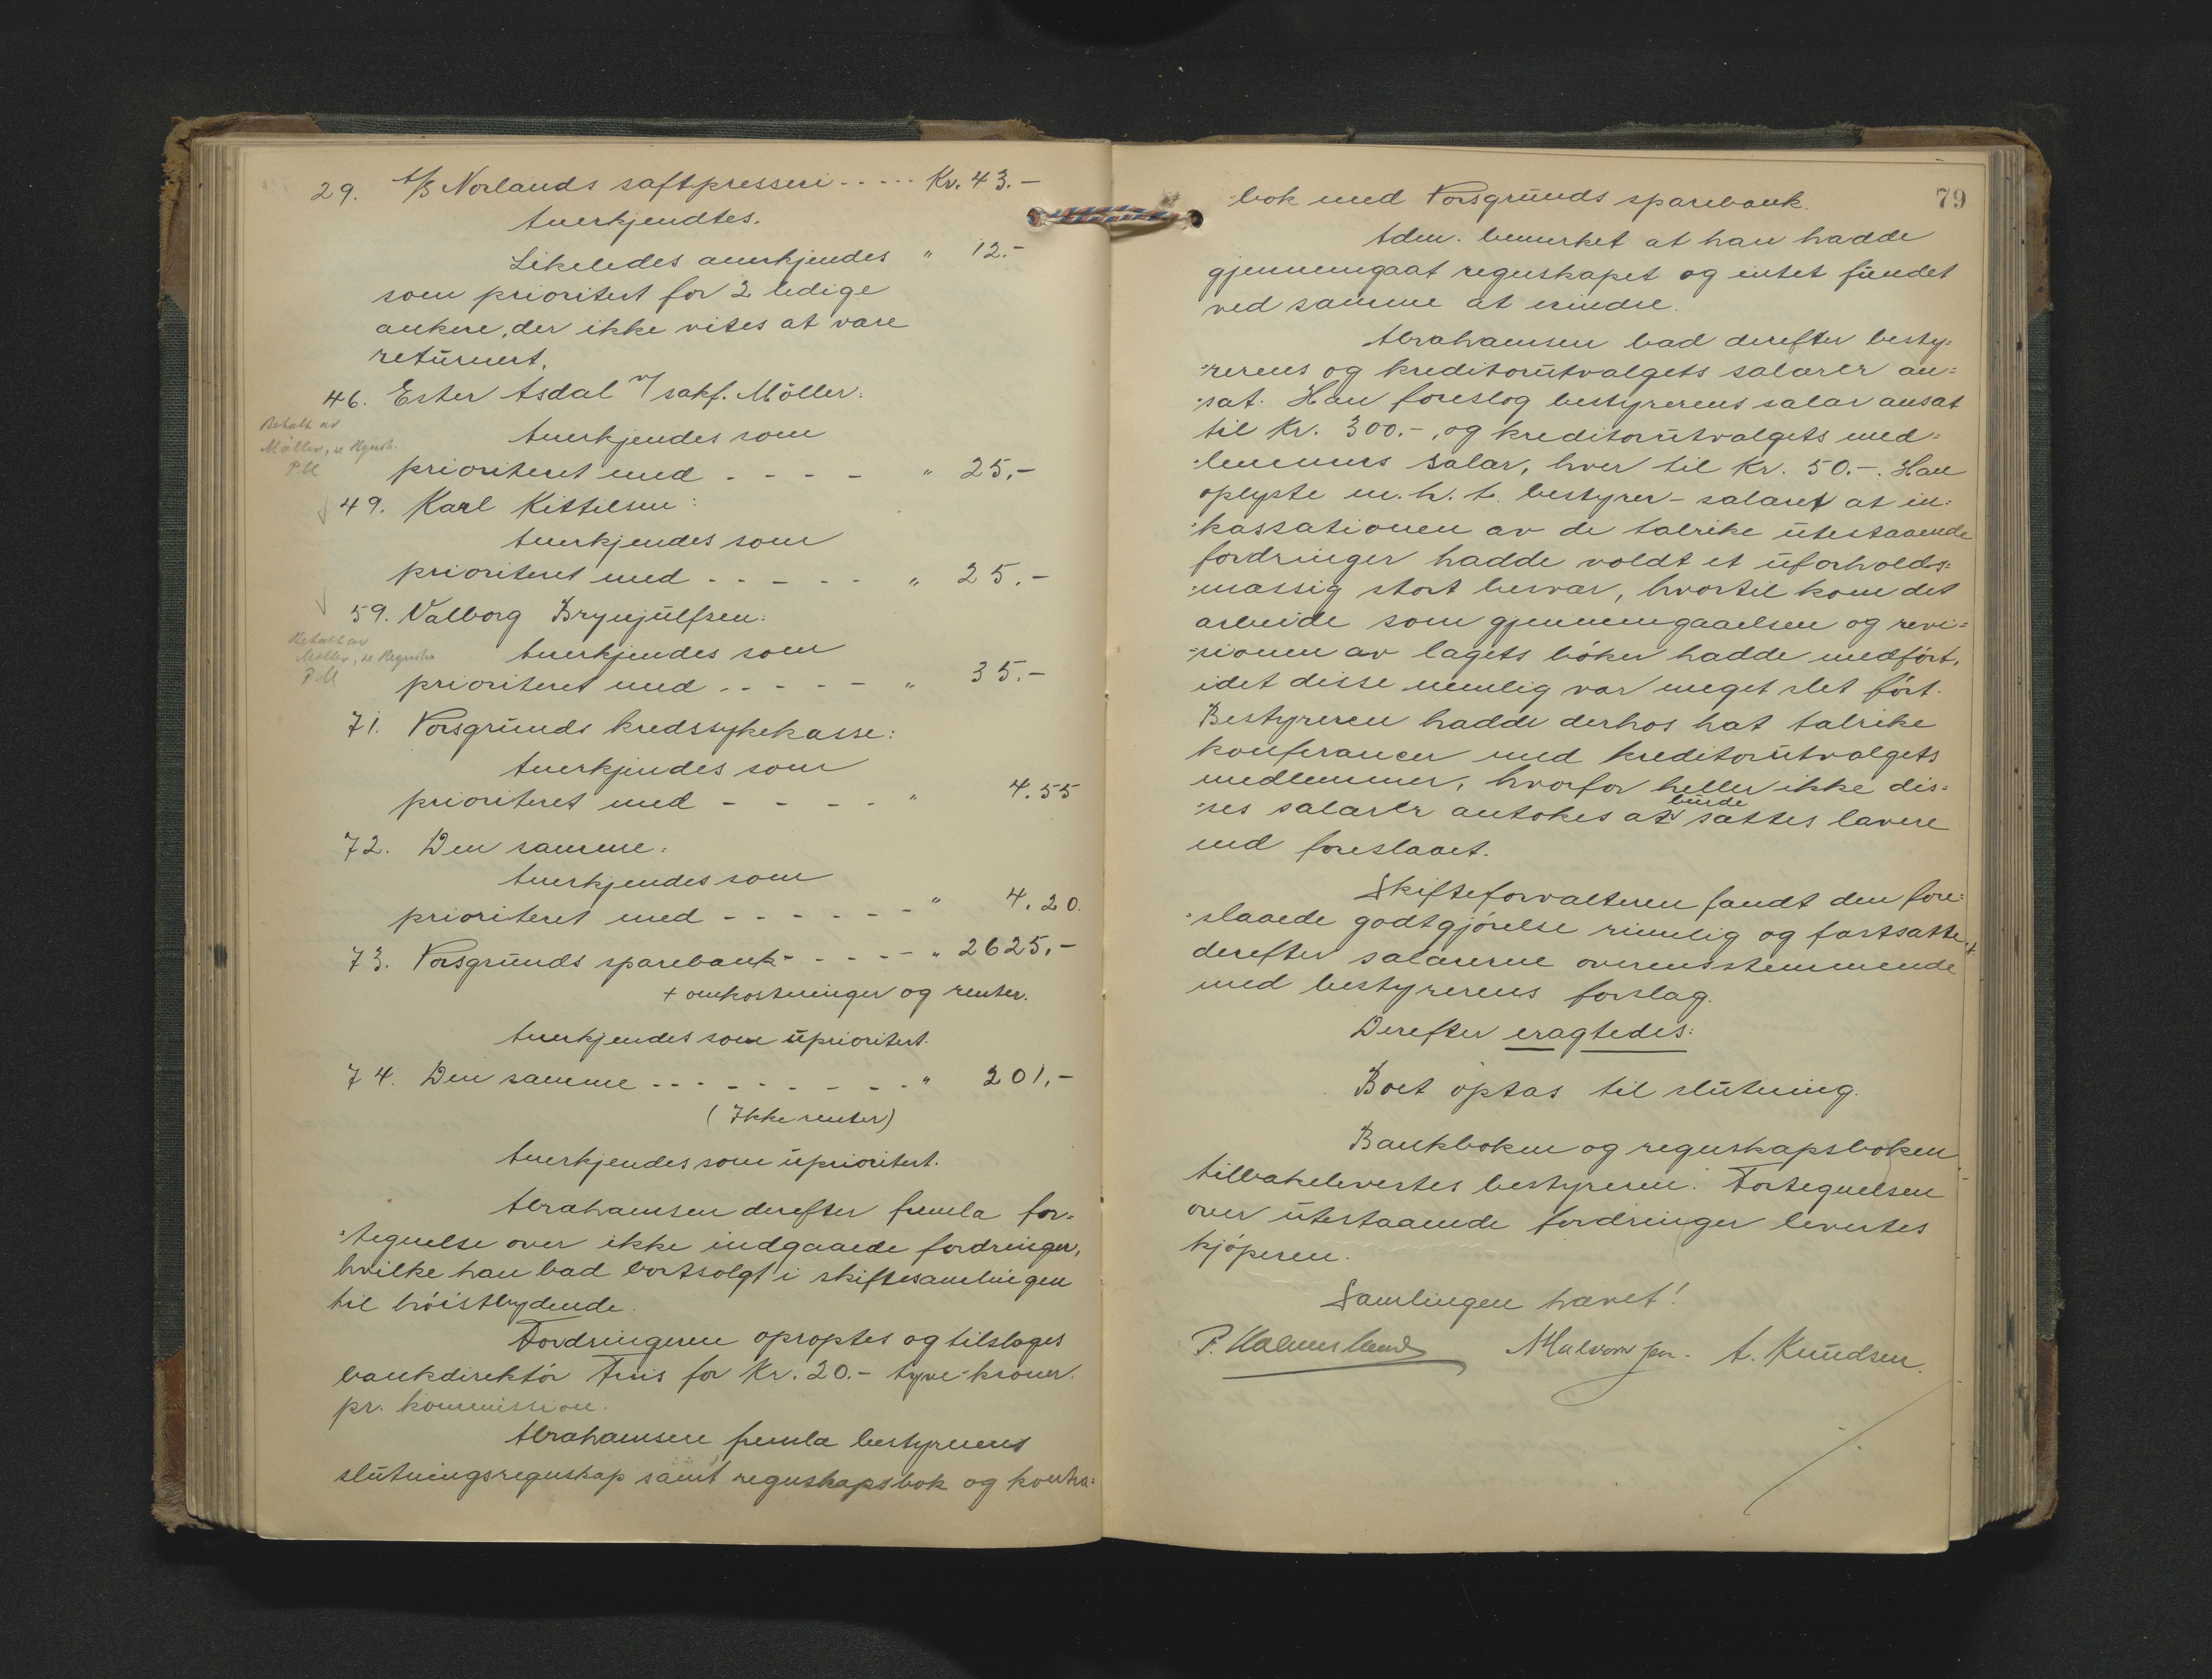 29. A/S Norlands saftpresseri - - - - - Kr. 43.-
Anerkjendtes.
Likeledes anerkjendes " 12.-
som prioritert for 2 ledige
ankere, der ikke vites at være
returnert.
46. Ester Asdal v/ sakf. Möller:
Betalt av
Möller, se Regnsk.
PM
Anerkjendes som
prioriteret med - - - - " 25.-
49. Karl Kittilsen:
Anerkjendes som
prioriteret med - - - - - " 25.-
59. Valborg Brynjulfsen:
Betalt av
Möller, se Regnska
PM
Anerkjendes som
prioriteret med - - - - - " 35.-
71. Porsgrunds kredssykekasse:
Anerkjendes som
prioriteret med - - - - " 4.55
72. Den samme:
Anerkjendes som
prioriteret med - - - - - - " 4.20.
73. Porsgrunds sparebank - - - - - " 2625.-
+ omkostninger og renter.
Anerkjendes som uprioritert.
74. Den samme - - - - - - - - - " 201.-
(Ikke renter)
Anerkjendes som uprioritert.
Abrahamsen derefter fremla for=
=tegnelse over ikke indgaaede fordringer,
hvilke han bad bortsolgt i skiftesamlingen
til höistbydende.
Fordringerne oproptes og tilsloges
bankdirektör Friis for Kr. 20.- tyve-kroner.
pr. kommission.
Abrahamsen fremla bestyrerens
slutningsregnskap samt regnskapsbok og kontra=
79
bok med Porsgrunds sparebank.
Adm. bemerket at han hadde
gjennemgaat regnskapet og intet fundet
ved samme at erindre.
Abrahamsen bad derefter besty=
=rerens og kreditorutvalgets salærer an=
=sat. Han foreslog bestyrerens salær ansat
til Kr. 300.-, og kreditorutvalgets med=
=lemmers salær, hver til Kr. 50.-. Han
oplyste m.h.t. bestyrer-salæret at in=
=kassationen av de talrike utestaaende
fordringer hadde voldt et uforholds=
=mæssig stort besvær, hvortil kom det
arbeide som gjennemgaaelsen og revi=
=sionen av lagets böker hadde medfört,
idet disse nemlig var meget slet fört.
Bestyreren hadde derhos hat talrike
konferancer med kreditorutvalgets
medlemmer, hvorfor heller ikke dis=
=ses salærer antokes at burde sættes lavere
end foreslaaet.
Skifteforvalteren fandt den fore=
=slaaede godtgjörelse rimelig og fastsatte
derefter salærerne overensstemmende
med bestyrerens forslag.
Derefter eragtedes:
Boet optas til slutning.
Bankboken og regnskapsboken
tilbakelevertes bestyreren. Fortegnelsen
over utestaaende fordringer levertes
kjöperen.
Samlingen hævet!
P. Halmesland A. Knudsen.